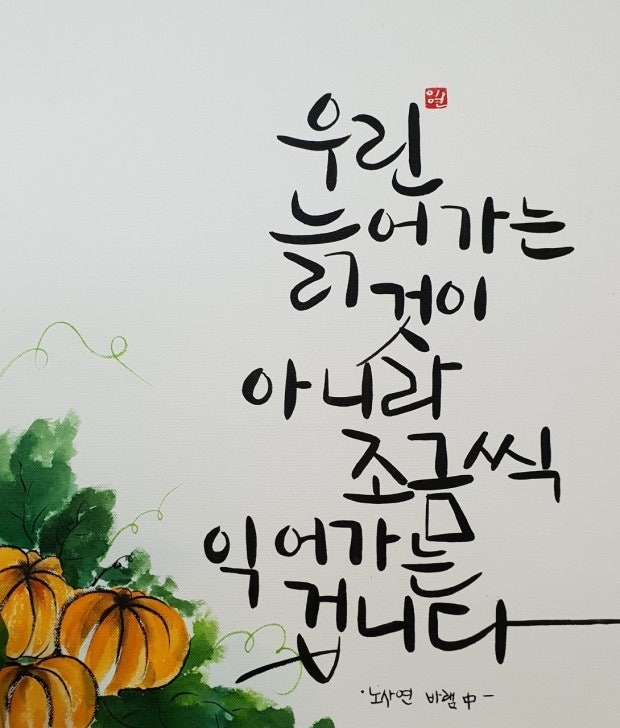 우린
늙어가는
것이
아니라
조금씩
익어가는
겁니다
·노사연 바램 中-